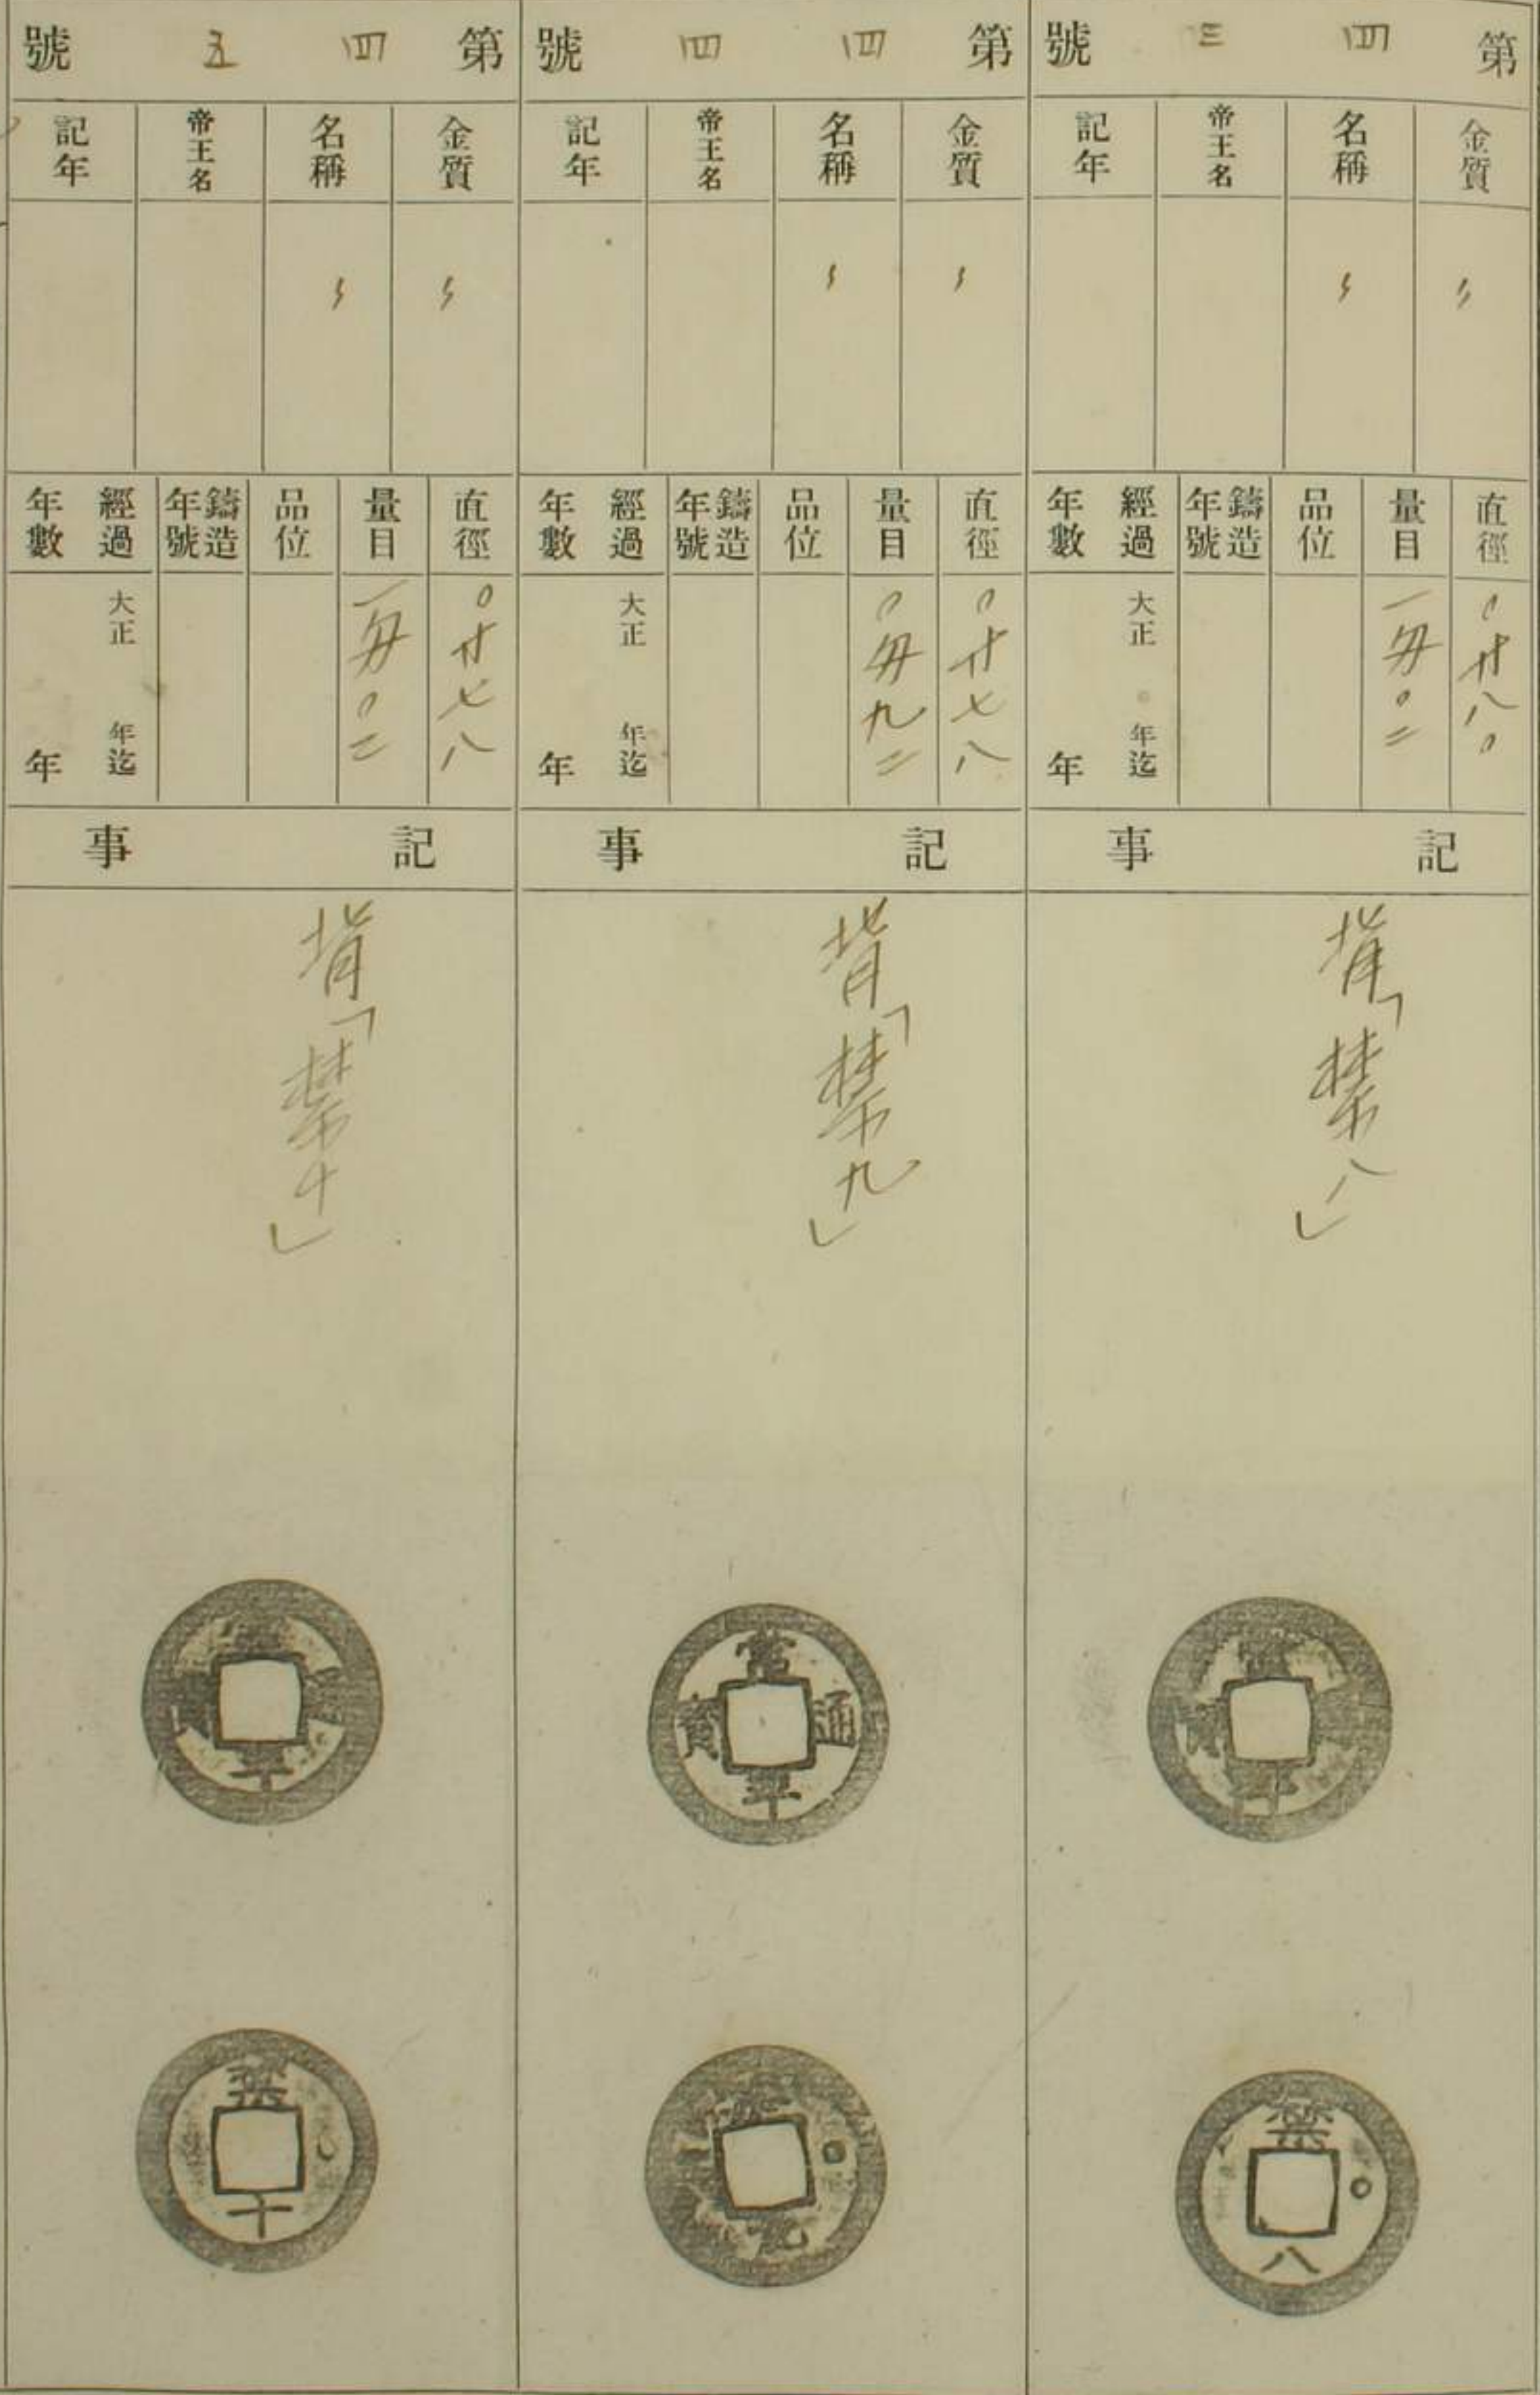 第四三號
金質
名稱
帝王名
記年
〻
〻
直徑
量目
品位
鑄造年號
經過年數
〇寸八〇
一匁〇二
大正 年迄
年
記事
背「禁八」
常平
禁八
第四四號
金質
名稱
帝王名
記年
〻
〻
直徑
量目
品位
鑄造年號
經過年數
〇寸七八
〇匁九二
大正 年迄
年
記事
背「禁九」
常平通寶
九
第四五號
金質
名稱
帝王名
記年
〻
〻
直徑
量目
品位
鑄造年號
經過年數
〇寸七八
一匁〇二
大正 年迄
年
記事
背「禁十」
平
禁十